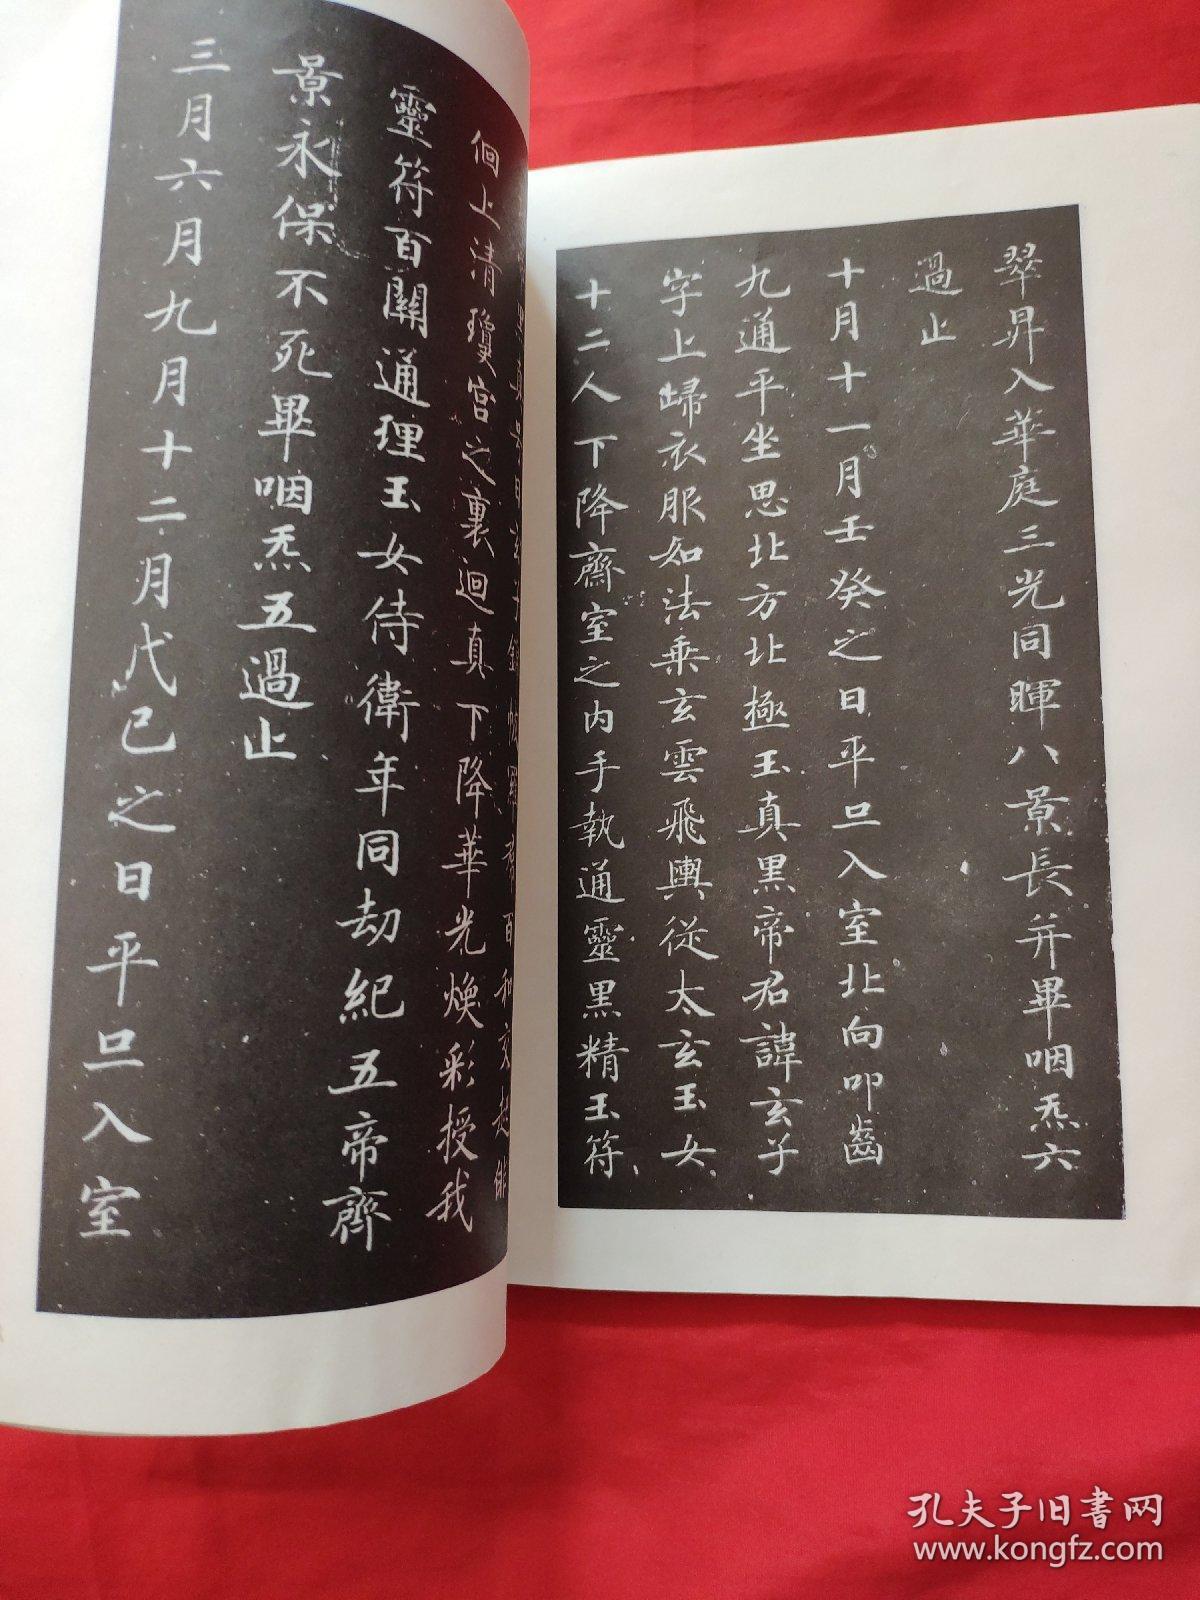 翠昇入華庭三光同暉八景長并畢咽炁六
過止
十月十一月壬癸之日平旦入室北向叩齒
九通平坐思北方北極玉真黑帝君諱玄子
字上歸衣服如法乘玄雲飛輿從太玄玉女
十二人下降齋室之內手執通靈黑精玉符
百和交起俳
佪上清瓊宮之裏迴真下降華光煥彩授我
靈符百關通理玉女侍衛年同劫紀五帝齊
景永保不死畢咽炁五過止
三月六月九月十二月戊己之日平旦入室
孔夫子旧书网
www.kongfz.com